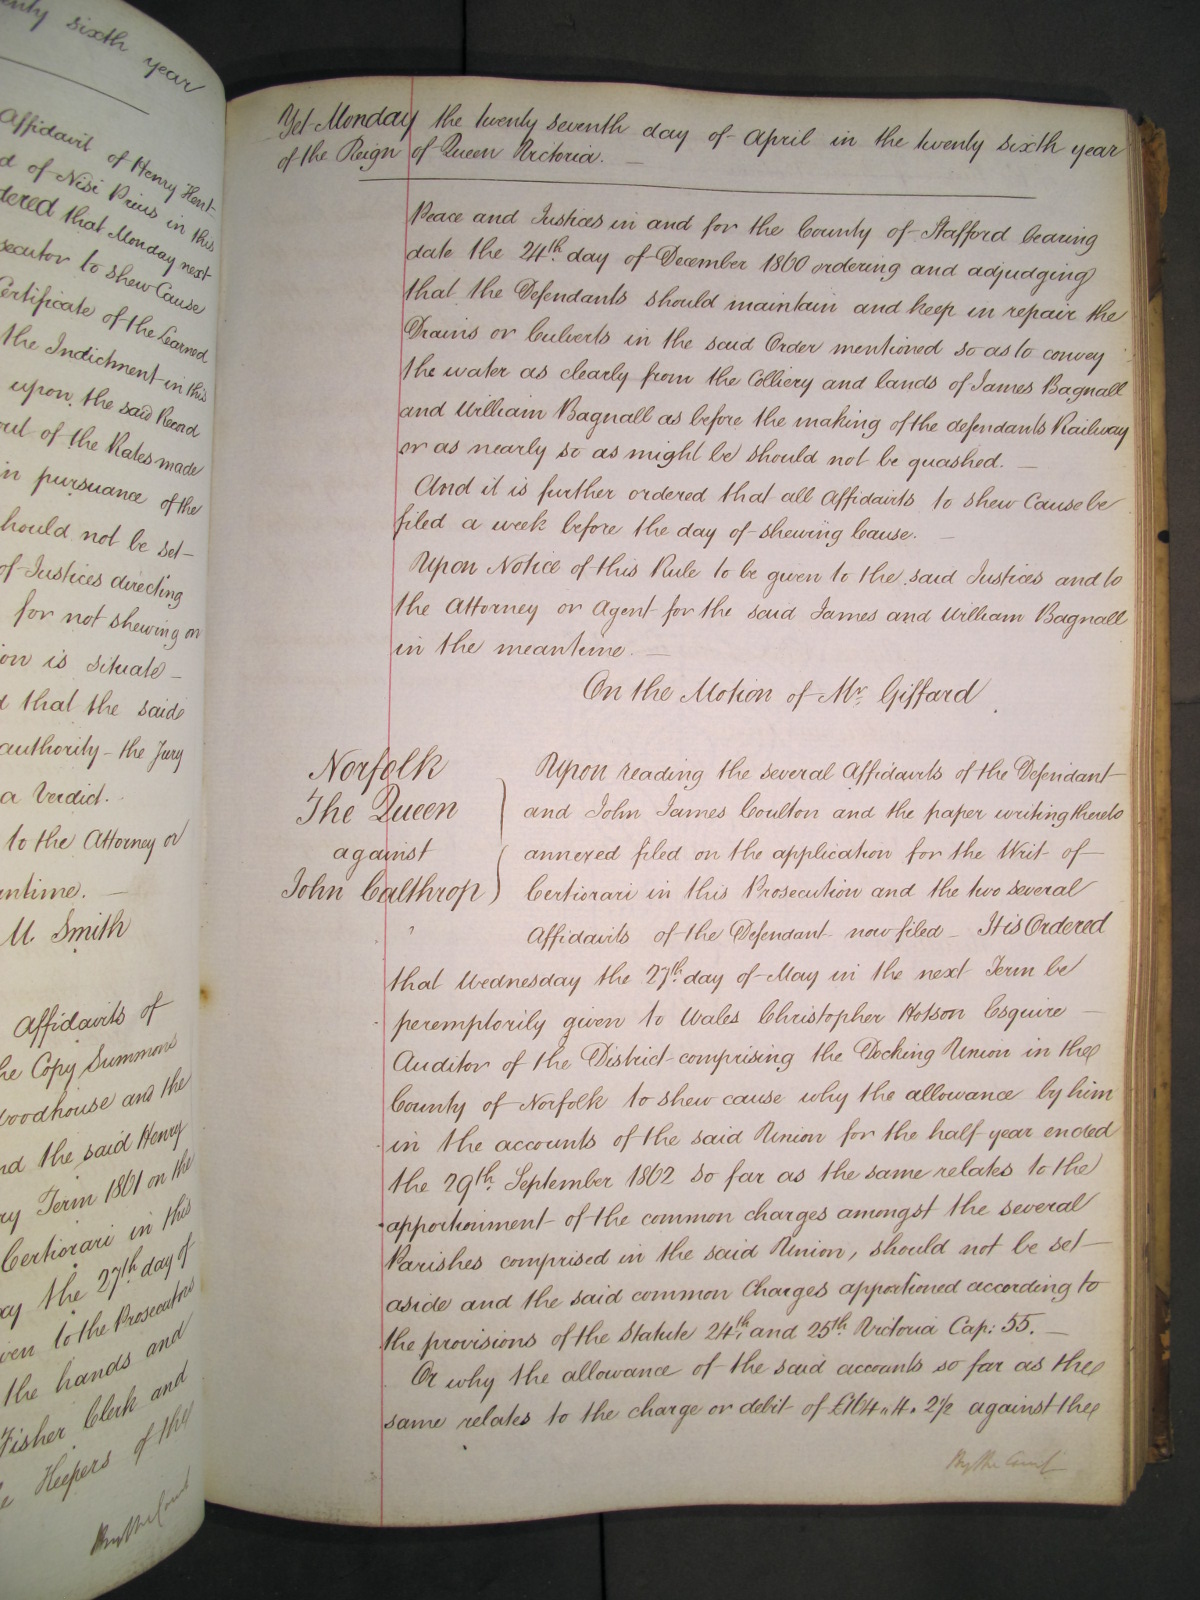 enty sixth year
Affidavit of Henry Hent-
d of Nisi Prius in this
dered that Monday next
secutor to shew Cause
Certificate of the Learned
the Indictment in this
upon the said Record
out of the Rates made
in pursuance of the
should not be set
of Justices directing
for not shewing on
ion is situate
d that the said
authority the Jury
a Verdict.
to the Attorney or
antime.
M. Smith
Affidavits of
he Copy Summons
Woodhouse and the
nd the said Henry
ry Term 1861 on the
Certiorari in this
ay the 27th day of
ven to the Prosecutors
the hands and
Fisher Clerk and
e Keepers of the
By the Court
Yet Monday the twenty seventh day of April in the twenty sixth year
of the Reign of Queen Victoria.
Peace and Justices in and for the County of Stafford bearing
date the 24th day of December 1860 ordering and adjudging
that the Defendants should maintain and keep in repair the
Drains or Culverts in the said Order mentioned so as to convey
the water as clearly from the Colliery and lands of James Bagnall
and William Bagnall as before the making of the defendants Railway
or as nearly so as might be should not be quashed.
And it is further ordered that all Affidavits to shew Cause be
filed a week before the day of shewing Cause.
Upon Notice of this Rule to be given to the said Justices and to
the Attorney or Agent for the said James and William Bagnall
in the meantime.
On the Motion of Mr. Giffard
Norfolk
The Queen
against
John Calthrop
Upon reading the several Affidavits of the Defendant
and John James Coulton and the paper writing thereto
annexed filed on the application for the Writ of
Certiorari in this Prosecution and the two several
Affidavits of the Defendant now filed It is Ordered
that Wednesday the 27th day of May in the next Term be
peremptorily given to Wales Christopher Hotson Esquire
Auditor of the District comprising the Docking Union in the
County of Norfolk to shew cause why the allowance by him
in the accounts of the said Union for the half year ended
the 29th September 1862 so far as the same relates to the
apportionment of the common charges amongst the several
Parishes comprised in the said Union, should not be set
aside and the said common Charges apportioned according to
the provisions of the Statute 24th and 25th Victoria Cap: 55.
Or why the allowance of the said accounts so far as the
same relates to the charge or debit of £164.4.2½ against the
By the Court